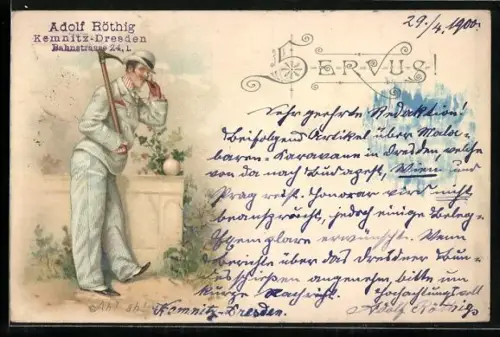 Adolf Röthig
Kemnitz-Dresden
Bahnstrasse 24, I.
29./4. 1900.
SERVUS!
Sehr geehrte Redaktion!
Beifolgend Artikel über Mala-
baren-Karavane in Dresden welche
von da nach Budapest, Wien und
Prag reist. Honorar wird nicht
beansprucht, jedoch einige Beleg-
Exemplare erwünscht. Wenn
Berichte über das Dresdner Bun-
desschießen angenehm bitte um
kurze Nachricht.
Hochachtungsvoll
Adolf Röthig
Kemnitz-Dresden.